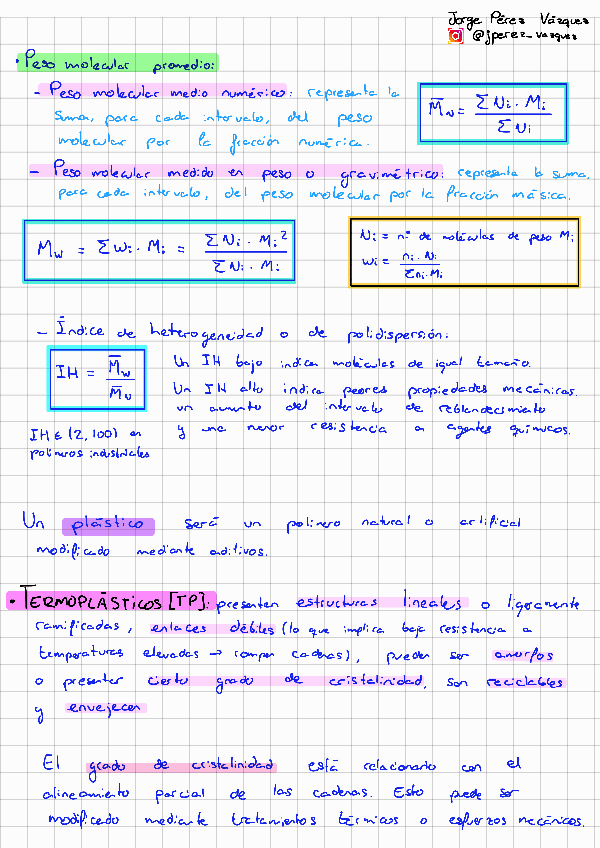 Jorge Pérez Vázquez
@jperez_vazquez
· Peso molecular promedio:
- Peso molecular medio numérico: representa la
suma, para cada intervalo, del peso
molecular por la fracción numérica.
M̄_N = Σ Ni · Mi / Σ Ni
- Peso molecular medido en peso o gravimétrico: representa la suma,
para cada intervalo, del peso molecular por la fracción másica.
M_w = Σ wi · Mi = Σ Ni · Mi² / Σ Ni · Mi
Ni = nº de moléculas de peso Mi
wi = ni · Ni / Σ ni · Mi
- Índice de heterogeneidad o de polidispersión:
IH = M̄_w / M̄_N
Un IH bajo indica moléculas de igual tamaño.
Un IH alto indica peores propiedades mecánicas,
un aumento del intervalo de reblandecimiento
y una menor resistencia a agentes químicos.
IH ∈ (2, 100) en
polímeros industriales
Un plástico será un polímero natural o artificial
modificado mediante aditivos.
· TERMOPLÁSTICOS [TP]: presentan estructuras lineales o ligeramente
ramificadas, enlaces débiles (lo que implica baja resistencia a
temperaturas elevadas → rompen cadenas), pueden ser amorfos
o presentar cierto grado de cristalinidad, son reciclables
y envejecen
El grado de cristalinidad está relacionado con el
alineamiento parcial de las cadenas. Esto puede ser
modificado mediante tratamientos térmicos o esfuerzos mecánicos.